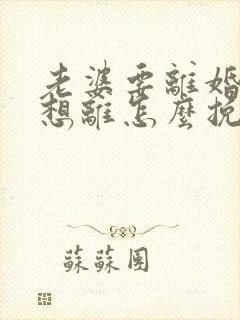 老婆要離婚
想離怎麼挽
蘇蘇團